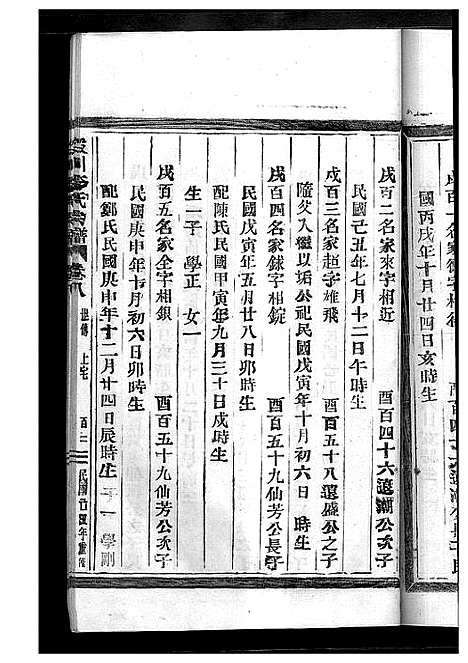 國丙戌年十月廿四日亥時生
戌百二名家來字相近 酉百四十六遠潮公次子
民國己丑年七月十二日午時生
戌百三名家超字雄飛 酉百五十八遠盛公之子
隨父入繼以垢公祀民國戊寅年十月初六日 時生
戌百四名家銾字相錠 酉百五十九仙芳公長子
民國戊寅年五月廿八日卯時生
配陳氏民國甲寅年九月三十日戌時生
生一子 學正 女一
戌百五名家全字相銀 酉百五十九仙芳公次子
民國庚申年十月初六日卯時生
配鄭氏民國庚申年十二月廿四日辰時生 子一 學剛
宗譜 卷八 世傳 上宅 百二 民國廿四年重修